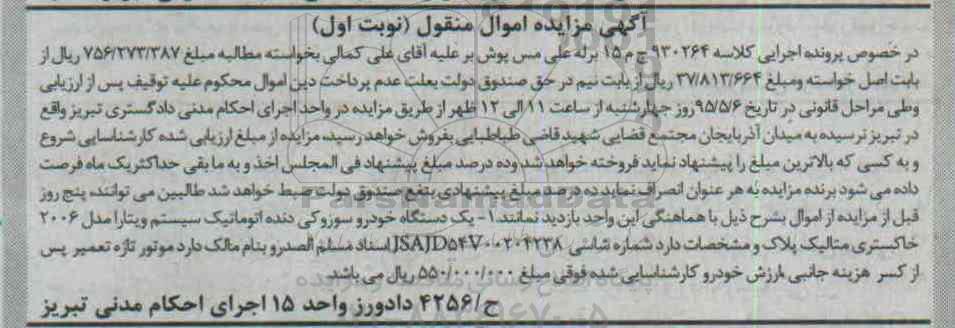 آگهی مزایده اموال منقول (نوبت اول)
در خصوص پرونده اجرایی کلاسه ۹۳۰۲۶۴ ج م ۱۵ برله علی مس پوش بر علیه آقای علی کمالی بخواسته مطالبه مبلغ ۷۵۶/۲۷۳/۳۸۷ ریال از
بابت اصل خواسته ومبلغ ۳۷/۸۱۳/۶۶۴ ریال از بابت نیم در حق صندوق دولت بعلت عدم پرداخت دین اموال محکوم علیه توقیف پس از ارزیابی
وطی مراحل قانونی در تاریخ ۹۵/۵/۶ روز چهارشنبه از ساعت ۱۱ الی ۱۲ ظهر از طریق مزایده در واحد اجرای احکام مدنی دادگستری تبریز واقع
در تبریز نرسیده به میدان آذربایجان مجتمع قضایی شهید قاضی طباطبایی بفروش خواهد رسید، مزایده از مبلغ ارزیابی شده کارشناسایی شروع
و به کسی که بالاترین مبلغ را پیشنهاد نماید فروخته خواهد شد وده درصد مبلغ پیشنهاد فی المجلس اخذ و به ما بقی حداکثر یک ماه فرصت
داده می شود برنده مزایده به هر عنوان انصراف نماید ده درصد مبلغ پیشنهادی بنفع صندوق دولت ضبط خواهد شد طالبین می توانند پنج روز
قبل از مزایده از اموال بشرح ذیل با هماهنگی این واحد بازدید نمانند.۱- یک دستگاه خودرو سوزوکی دنده اتوماتیک سیستم ویتارا مدل ۲۰۰۶
خاکستری متالیک پلاک و مشخصات دارد شماره شاسی JSAJD۵۴V۰۰۲۰۴۲۳۸ اسناد مسلم الصدرو بنام مالک دارد موتور تازه تعمیر پس
از کسر هزینه جانبی ارزش خودرو کارشناسایی شده فوقی مبلغ ۵۵۰/۰۰۰/۰۰۰ ریال می باشد.
ح/۴۲۵۶ دادورز واحد ۱۵ اجرای احکام مدنی تبریز
ParsNamadData